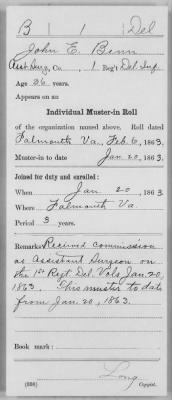 B 1 Del
John E. Benn
Asst Surg, Co. , 1 Reg't Del Inf.
Age 26 years.
Appears on an
Individual Muster-in Roll
of the organization named above. Roll dated
Falmouth Va., Feb 6, 1863.
Muster-in to date Jan. 20, 1863.
Joined for duty and enrolled:
When Jan 20, 1863
Where Falmouth Va.
Period 3 years.
Remarks Received commission
as Assistant Surgeon on
the 1st Regt Del Vols Jan. 20,
1863. This muster to date
from Jan. 20, 1863.
Book mark:
Long
Copyist.